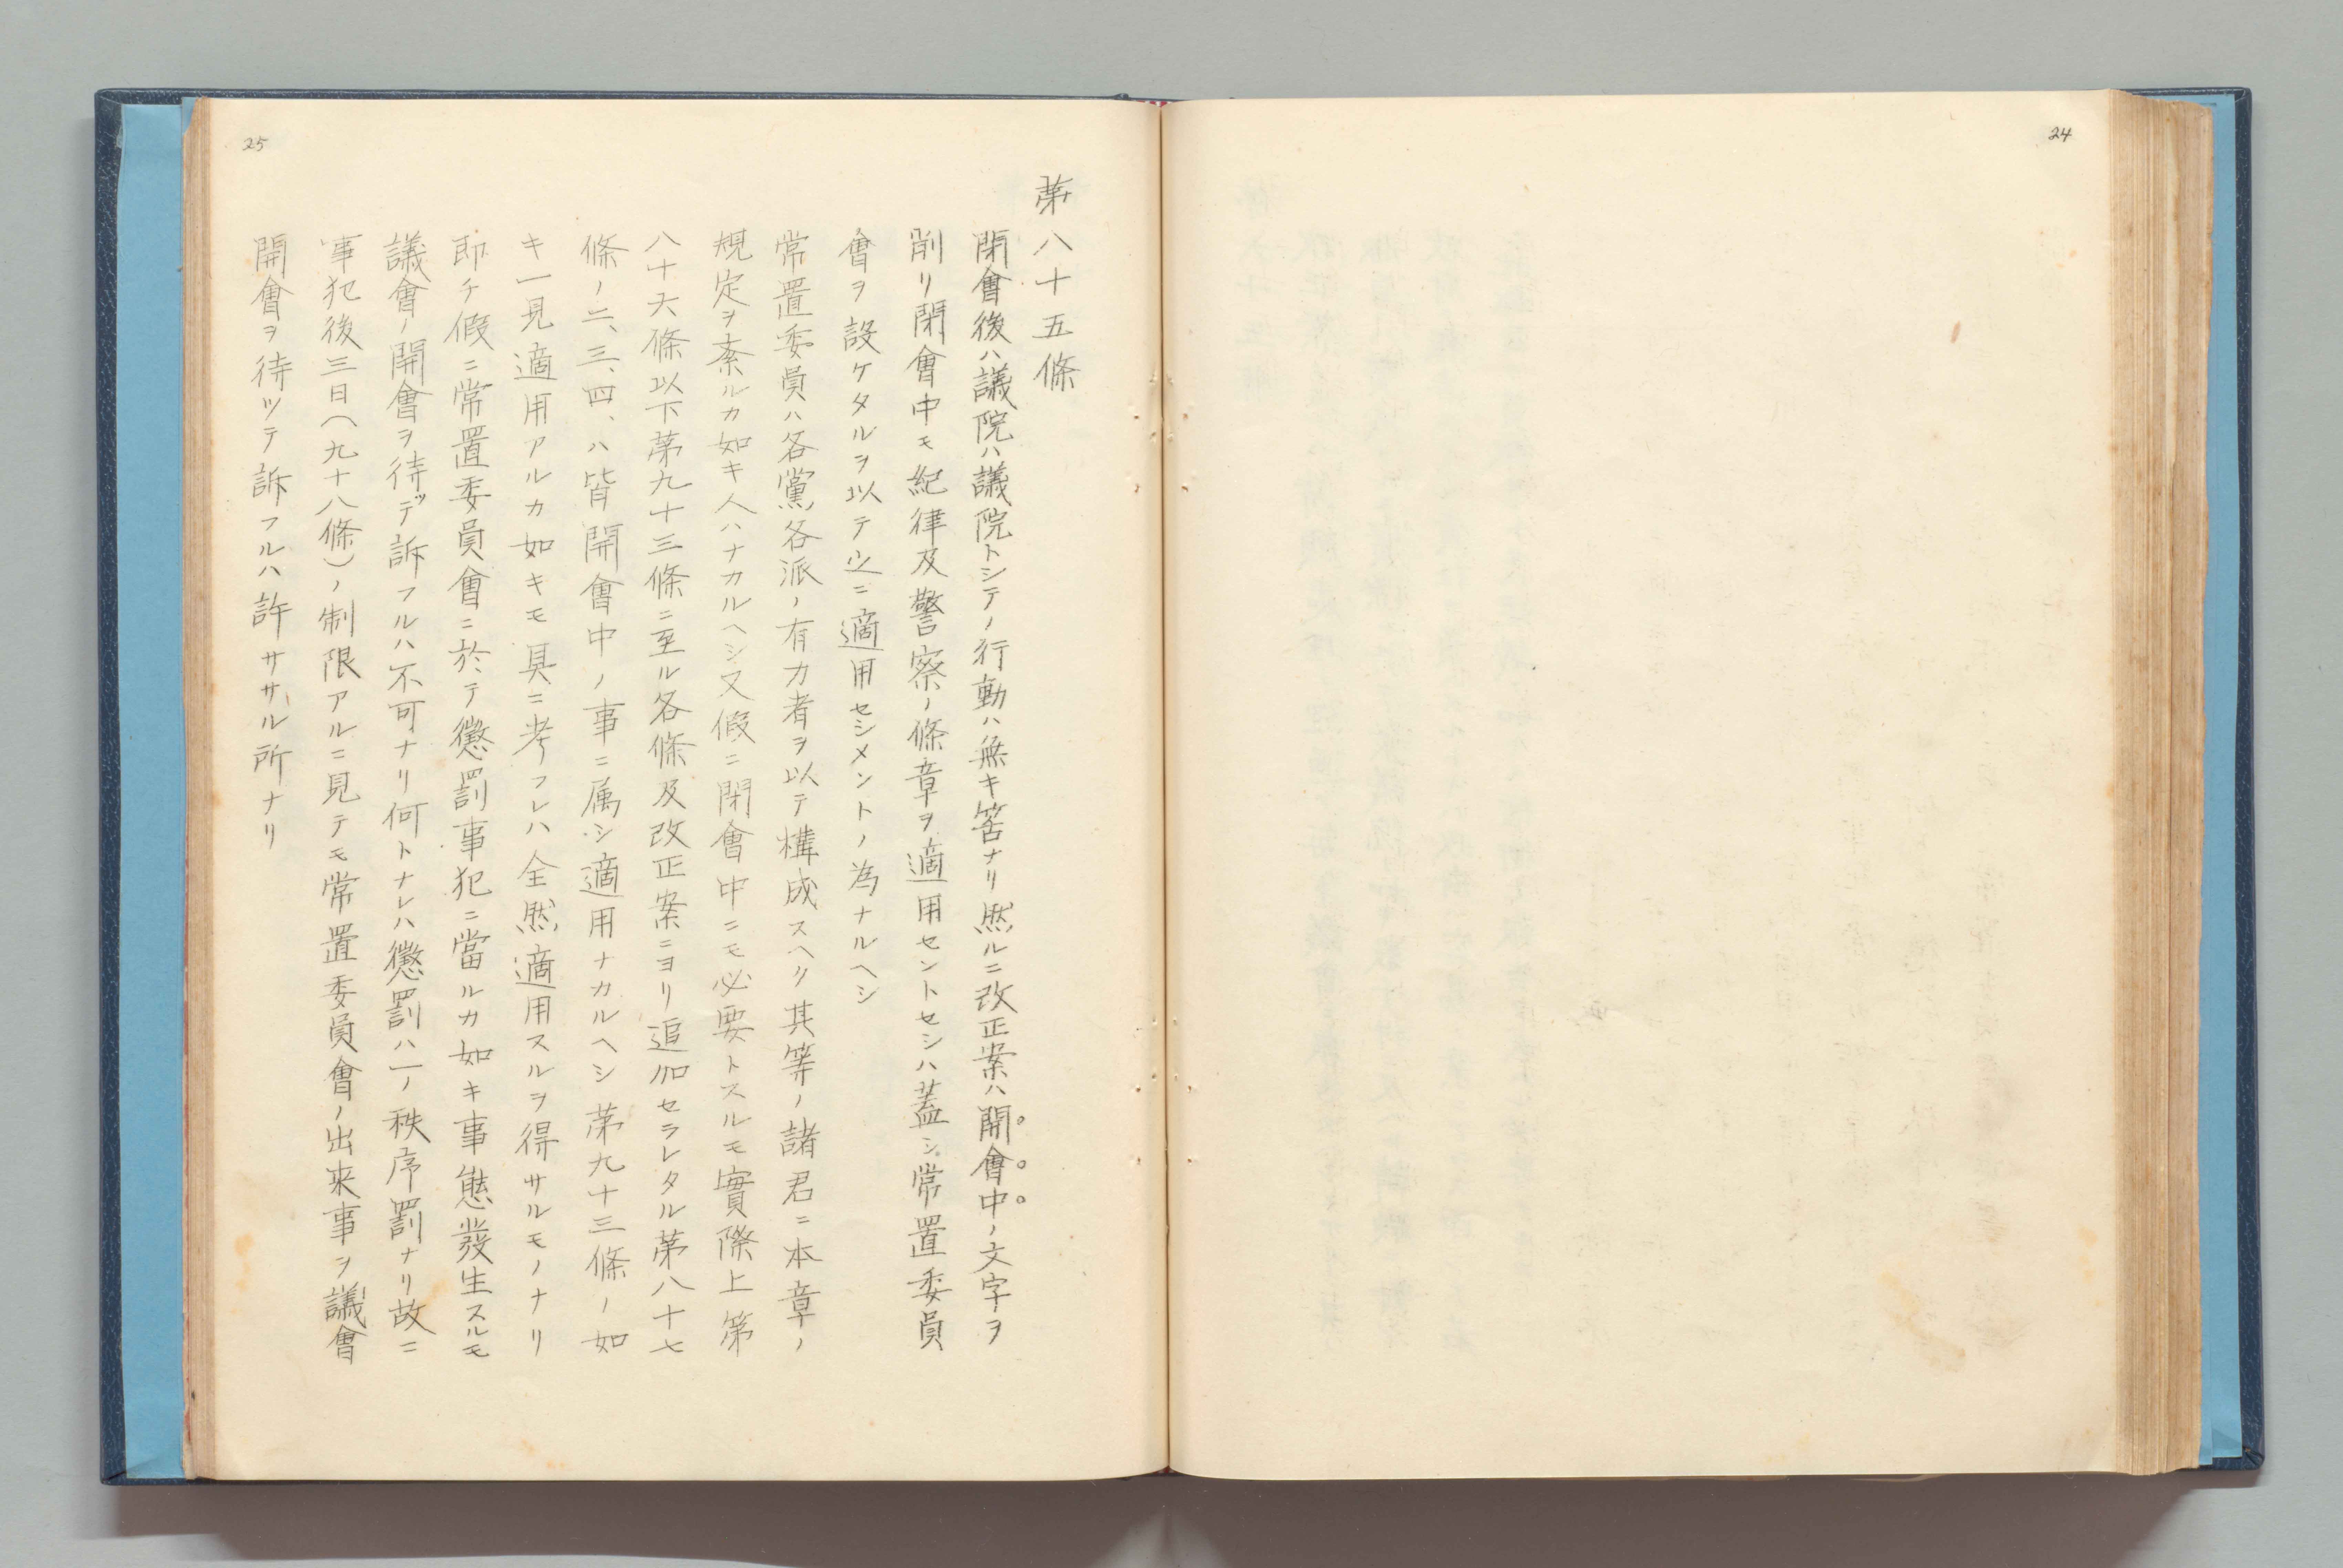 24
25
第八十五條
閉會後ハ議院ハ議院トシテノ行動ハ無キ筈ナリ然ルニ改正案ハ開會中ノ文字ヲ
削リ閉會中モ紀律及警察ノ條章ヲ適用セントセシハ蓋シ常置委員
會ヲ設ケタルヲ以テ之ニ適用セシメントノ為ナルヘシ
常置委員ハ各黨各派ノ有力者ヲ以テ構成スヘク其等ノ諸君ニ本章ノ
規定ヲ紊ルカ如キ人ハナカルヘシ又假ニ閉會中ニモ必要トスルモ實際上第
八十六條以下第九十三條ニ至ル各條及改正案ニヨリ追加セラレタル第八十七
條ノ二、三、四、ハ皆開會中ノ事ニ属シ適用ナカルヘシ第九十三條ノ如
キ一見適用アルカ如キモ具ニ考フレハ全然適用スルヲ得サルモノナリ
即チ假ニ常置委員會ニ於テ懲罰事犯ニ當ルカ如キ事態發生スルモ
議會ノ開會ヲ待デ訴フルハ不可ナリ何トナレハ懲罰ハ一ノ秩序罰ナリ故ニ
事犯後三日(九十八條)ノ制限アルニ見テモ常置委員會ノ出来事ヲ議會
開會ヲ待ツテ訴フルハ許サザル所ナリ